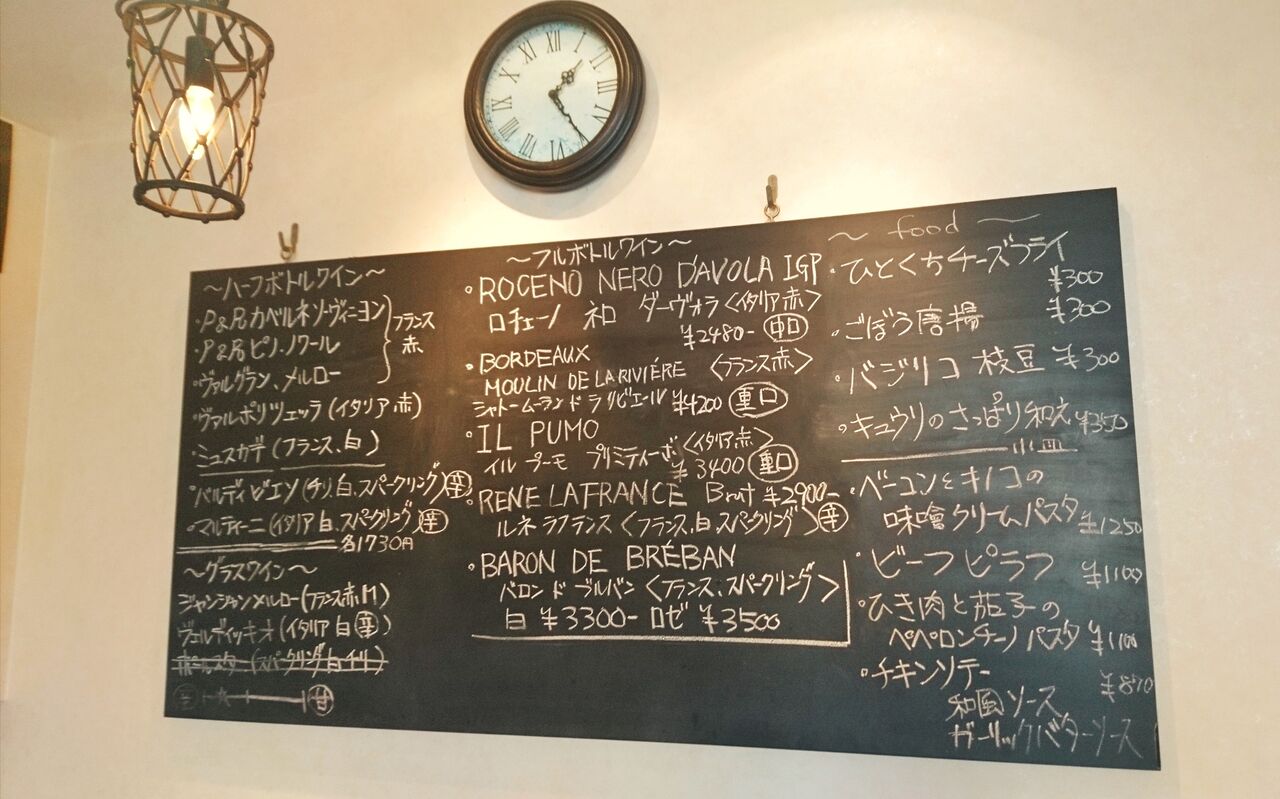 XII
I
II
III
IIII
V
VI
VII
VIII
IX
X
XI
〜ハーフボトルワイン〜
・P&Rカベルネソーヴィニヨン
・P&Rピノ・ノワール
・ヴァルグラン、メルロー
フランス
赤
・ヴァルポリツェッラ(イタリア,赤)
・ミュスカデ(フランス、白)
・バルディビエソ(チリ,白、スパークリング)辛
・マルティーニ(イタリア白、スパークリング)辛
各1730円
〜グラスワイン〜
ジャンジャンメルロー(フランス赤M)
ヴェルディッキオ(イタリア白辛)
ポールスター(スパークリング白チリ)
辛 甘
〜フルボトルワイン〜
・ROCENO NERO D'AVOLA IGP
ロチェーノ ネロ ダーヴォラ〈イタリア赤〉
¥2480- 中口
・BORDEAUX
MOULIN DE LA RIVIÉRE 〈フランス赤〉
シャトームーラン ド ラ リビエール ¥4200 重口
・IL PUMO
イル プーモ プリミティーボ〈イタリア赤〉
¥3400 重口
・RENE LAFRANCE Brut ¥2900-
ルネ ラフランス〈フランス、白 スパークリング〉辛
・BARON DE BRÉBAN
バロン ド ブルバン〈フランス、スパークリング〉
白 ¥3300- ロゼ ¥3500
〜 food 〜
・ひとくちチーズフライ
¥300
・ごぼう唐揚 ¥300
・バジリコ 枝豆 ¥300
・キュウリのさっぱり和え ¥350
小皿
・ベーコンとキノコの
味噌クリームパスタ ¥1250
・ビーフピラフ ¥1100
・ひき肉と茄子の
ペペロンチーノパスタ ¥1100
・チキンソテー ¥870
和風ソース
ガーリックバターソース